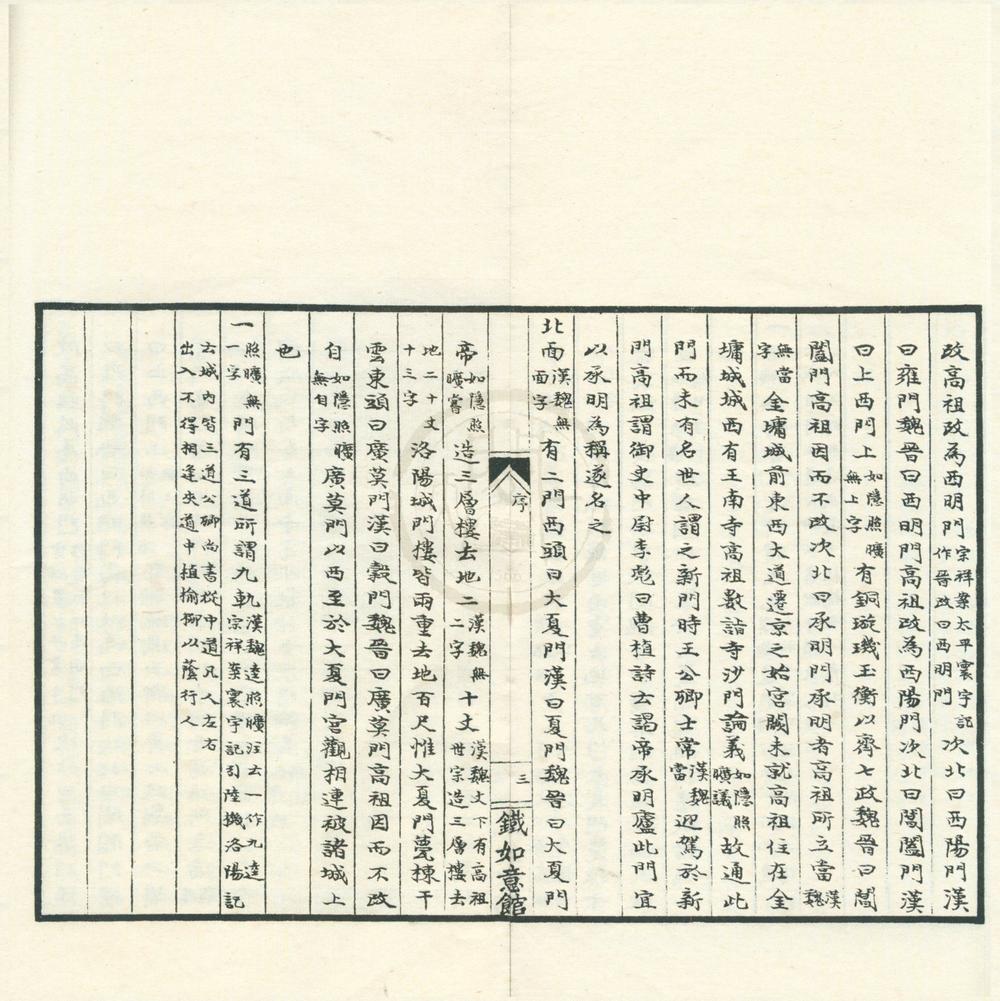 改高祖改為西明門宗祥案太平寰宇記作晉改曰西明門次北曰西陽門漢
曰雍門魏晉曰西明門高祖改為西陽門次北曰閶闔門漢
曰上西門上如隱照曠無上字有銅璇璣玉衡以齊七政魏晉曰閶
闔門高祖因而不改次北曰承明門承明者高祖所立當漢魏
無當字金墉城前東西大道遷京之始宮闕未就高祖住在金
墉城城西有王南寺高祖數詣寺沙門論義如隱照曠議故通此
門而未有名世人謂之新門時王公卿士常漢魏當迎駕於新
門高祖謂御史中尉李彪曰曹植詩云謁帝承明廬此門宜
以承明為稱遂名之
北面漢魏無面字有二門西頭曰大夏門漢曰夏門魏晉曰大夏門
序
三
鐵如意館
帝如隱照曠嘗造三層樓去地二漢魏無二字十丈漢魏丈下有高祖世宗造三層樓去
地二十丈十三字洛陽城門樓皆兩重去地百尺惟大夏門甍棟干
雲東頭曰廣莫門漢曰穀門魏晉曰廣莫門高祖因而不改
自如隱照曠無自字廣莫門以西至於大夏門宮觀相連被諸城上
也
一照曠無一字門有三道所謂九軌漢魏逵照曠注云一作九逵宗祥案寰宇記引陸機洛陽記
云城內皆三道公卿尚書從中道凡人左右
出入不得相逢夾道中植榆柳以蔭行人